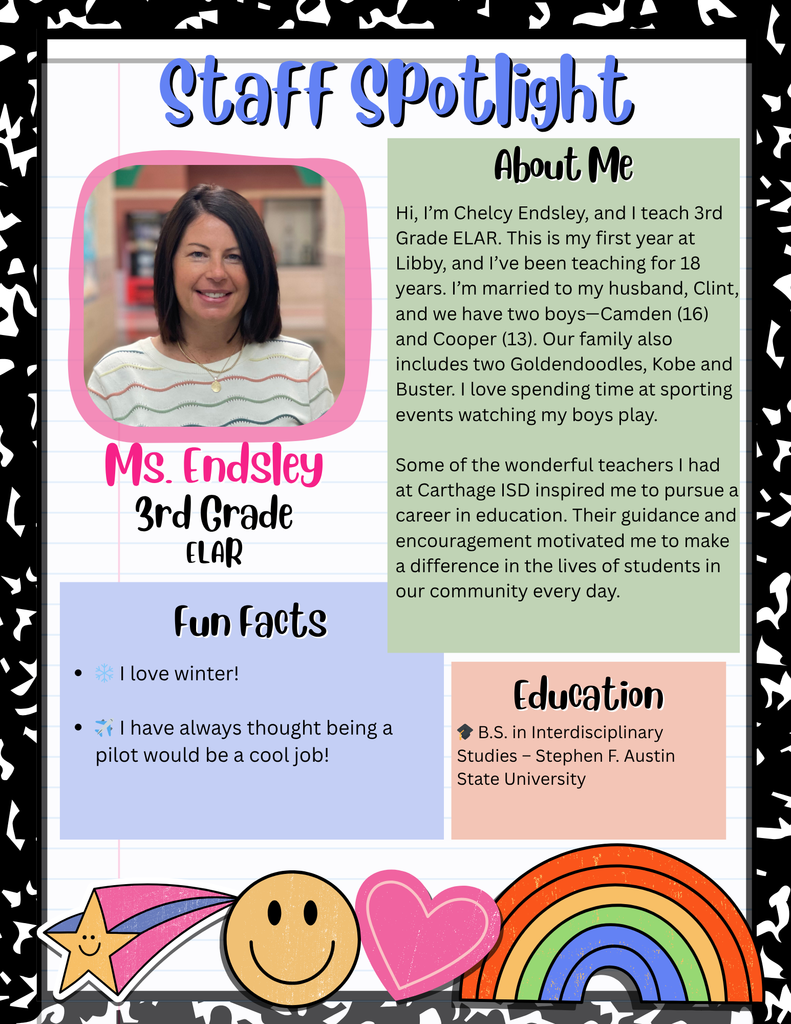 Staff Spotlight
About Me
Hi, I’m Chelcy Endsley, and I teach 3rd
Grade ELAR. This is my first year at
Libby, and I’ve been teaching for 18
years. I’m married to my husband, Clint,
and we have two boys—Camden (16)
and Cooper (13). Our family also
includes two Goldendoodles, Kobe and
Buster. I love spending time at sporting
events watching my boys play.
Some of the wonderful teachers I had
at Carthage ISD inspired me to pursue a
career in education. Their guidance and
encouragement motivated me to make
a difference in the lives of students in
our community every day.
Ms. Endsley
3rd Grade
ELAR
Fun Facts
• ❄️ I love winter!
• ✈️ I have always thought being a
pilot would be a cool job!
Education
🎓 B.S. in Interdisciplinary
Studies – Stephen F. Austin
State University